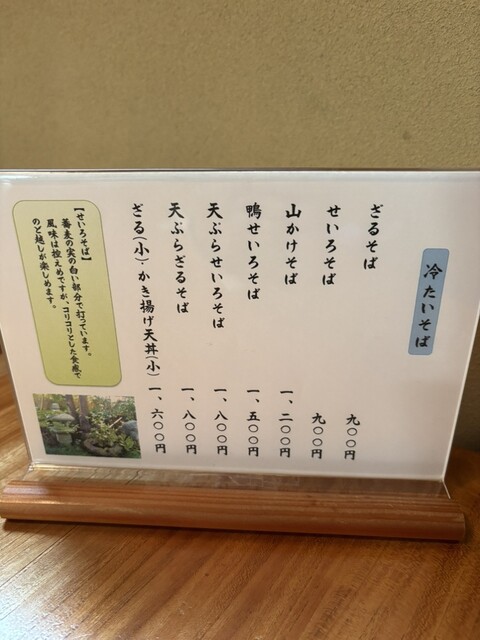 冷たいそば
ざるそば 九〇〇円
せいろそば 九〇〇円
山かけそば 一、二〇〇円
鴨せいろそば 一、五〇〇円
天ぷらせいろそば 一、八〇〇円
天ぷらざるそば 一、八〇〇円
ざる(小)・かき揚げ天丼(小) 一、六〇〇円
【せいろそば】
蕎麦の実の白い部分で打っています。
風味は控えめですが、コリコリとした食感で
のど越しが楽しめます。